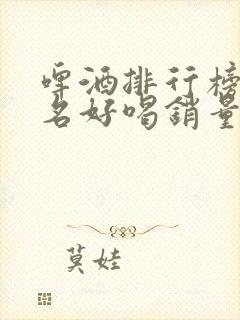 啤酒排行榜
名好喝銷量
莫娃